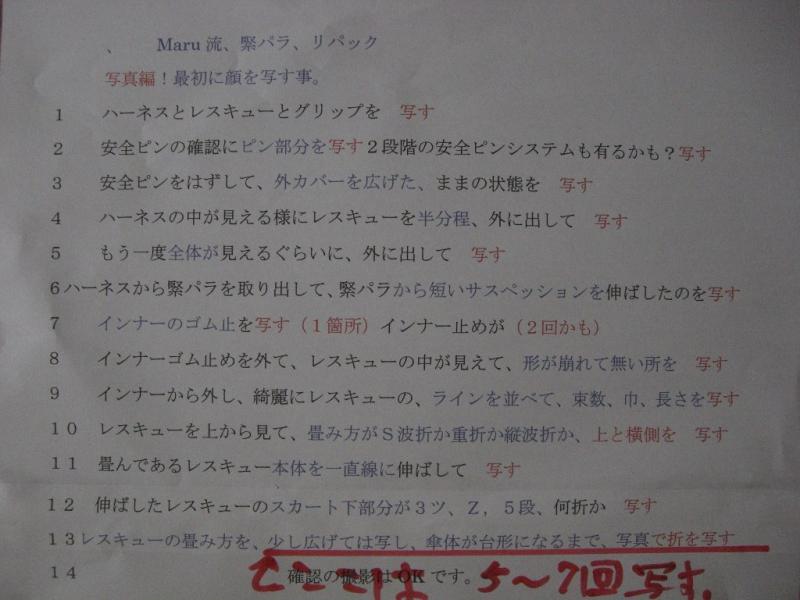 、 Maru 流、緊パラ、リパック
写真編！最初に顔を写す事。
1 ハーネスとレスキューとグリップを 写す
2 安全ピンの確認にピン部分を写す２段階の安全ピンシステムも有るかも？写す
3 安全ピンをはずして、外カバーを広げた、ままの状態を 写す
4 ハーネスの中が見える様にレスキューを半分程、外に出して 写す
5 もう一度全体が見えるぐらいに、外に出して 写す
6 ハーネスから緊パラを取り出して、緊パラから短いサスペッションを伸ばしたのを写す
7 インナーのゴム止を写す（１箇所）インナー止めが（２回かも）
8 インナーゴム止めを外て、レスキューの中が見えて、形が崩れて無い所を 写す
9 インナーから外し、綺麗にレスキューの、ラインを並べて、束数、巾、長さを写す
１０ レスキューを上から見て、畳み方がＳ波折か重折か縦波折か、上と横側を 写す
１１ 畳んであるレスキュー本体を一直線に伸ばして 写す
１２ 伸ばしたレスキューのスカート下部分が３ツ、Ｚ，５段、何折か 写す
１３レスキューの畳み方を、少し広げては写し、傘体が台形になるまで、写真で折を写す
１４ 確認の撮影はOK です。
ここは 5〜7回写す。